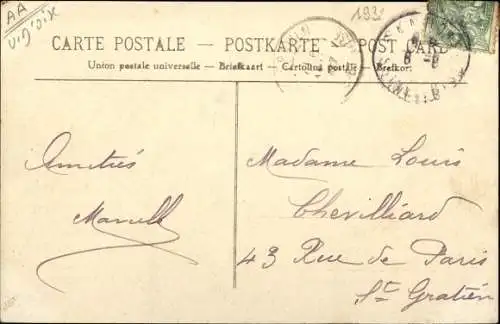 AA
1931
CARTE POSTALE – POSTKARTE – POST CARD
Union postale universelle – Briefkaart – Cartolina postale – Brefkort
Amitiés
Marcelle
Madame Louis
Chevilliard
43 Rue de Paris
St Gratien